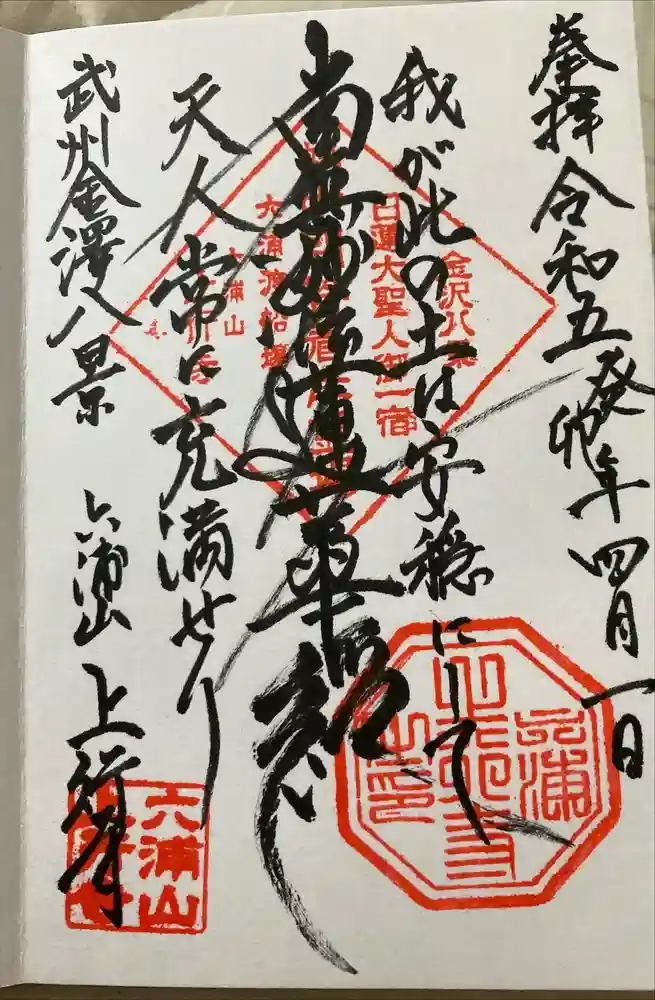 奉拝 令和五癸卯年四月一日
我が此の土は安穏にして
南無妙法蓮華経
天人常に充満せり
武州金澤八景 六浦山 上行寺
金沢八景
日蓮大聖人御一宿
六浦波船場
六浦山
六浦
上行寺
之印
六浦山
上行寺